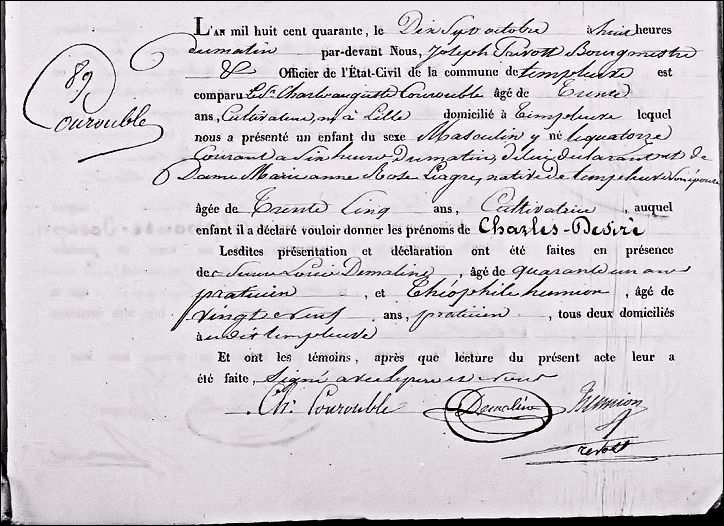 L'AN mil huit cent quarante, le Dix Sept octobre à huit heures
du matin par-devant Nous, Joseph Trivott Bourgmestre
& Officier de l'État-Civil de la commune de templeuve est
comparu Le Sr. Charles auguste Courouble âgé de Trente
ans, Cultivateur, né à Lille domicilié à Templeuve lequel
nous a présenté un enfant du sexe Masculin y né le quatorze
Courant a Six heures Du matin, de lui declarant et de
Dame Marie anne Rose Liagre, native de templeuve Son épouse
âgée de Trente Cinq ans, Cultivatrice, auquel
enfant il a déclaré vouloir donner les prénoms de Charles-Desiré
Lesdites présentation et déclaration ont été faites en présence
des Sieurs Louis Demaline, âgé de quarante un ans
praticien, et Théophile humior, âgé de
Vingt Neuf ans, praticien, tous deux domiciliés
à udis templeuve
Et ont les témoins, après que lecture du présent acte leur a
été faite, Signé avec le père et Nous
Ch. Courouble Demaline
89
Courouble